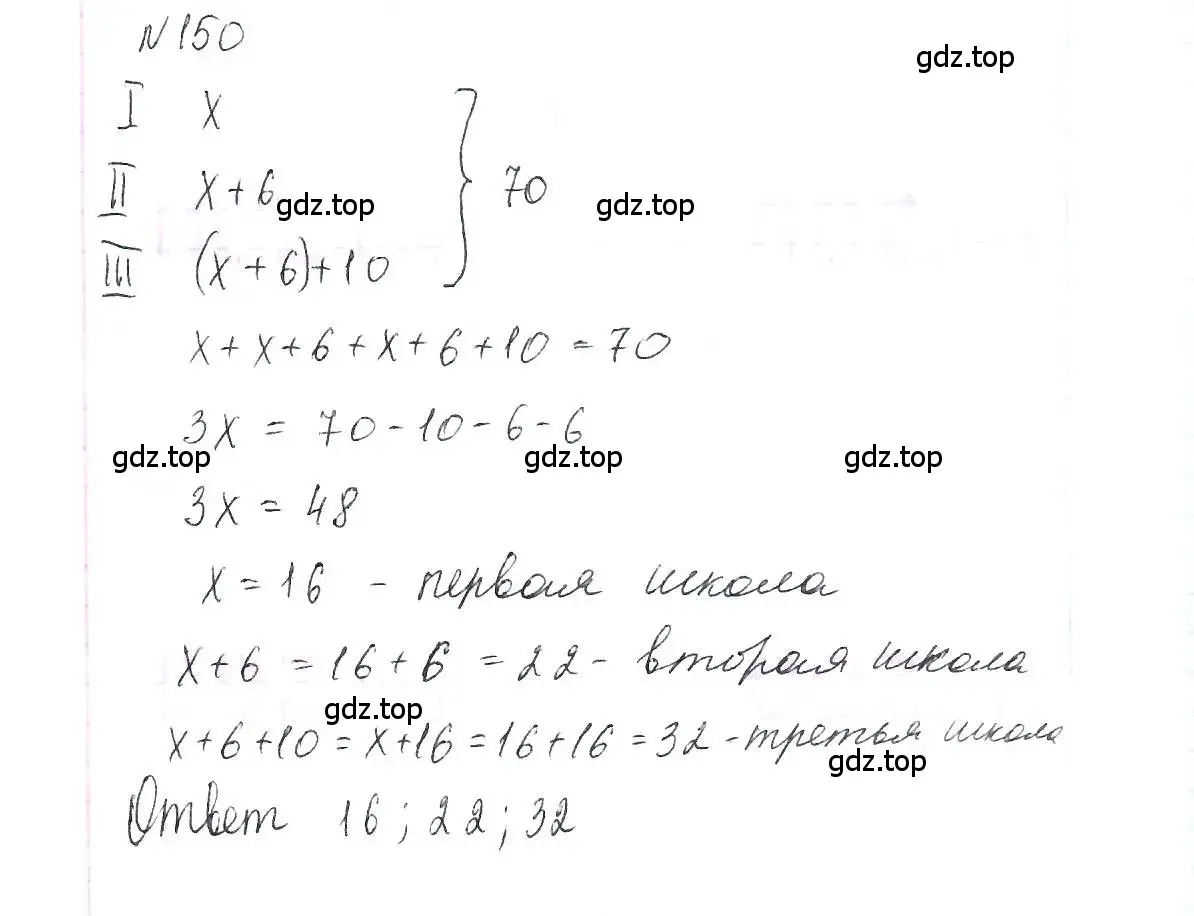 N 150
gdz.top
I x
II x+6
gdz.top gdz.top
} 70
III (x+6)+10
x+x+6+x+6+10=70
3x = 70-10-6-6
gdz.top gdz.top gdz.top
3x = 48
x=16 - первая школа
x+6 =16+6 =22- вторая школа
gdz.top
x+6+10=x+16=16+16=32-третья школа
gdz.top
Ответ 16; 22; 32